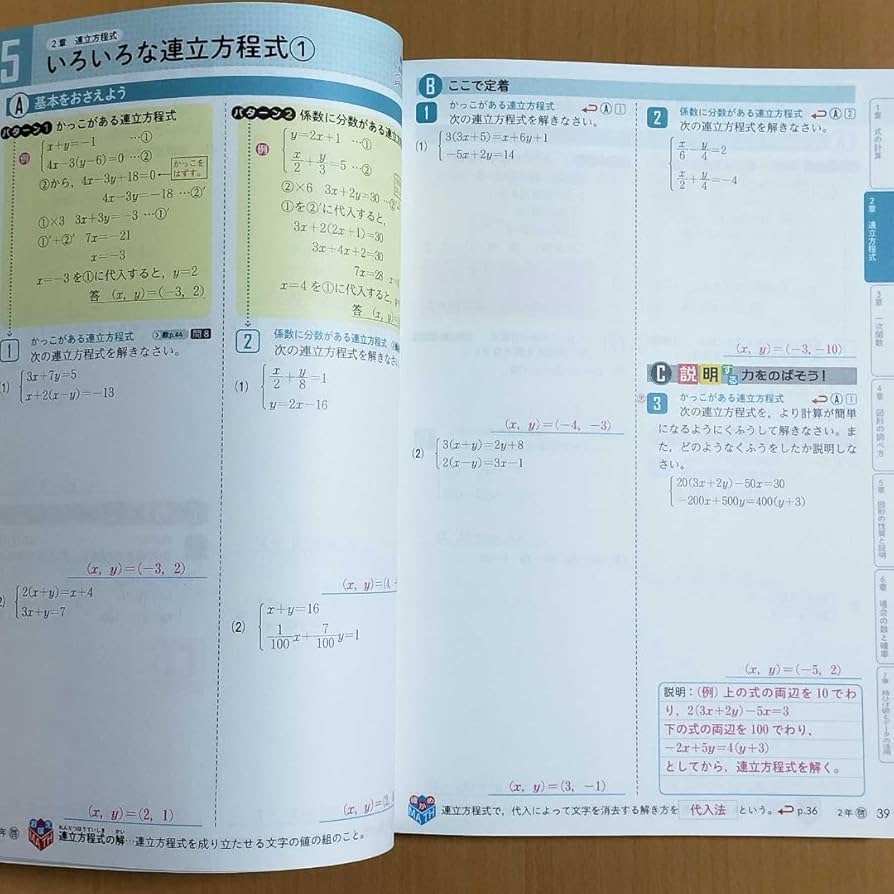 5
2章 連立方程式
いろいろな連立方程式①
A 基本をおさえよう
パターン1 かっこがある連立方程式
例
x+y=-1 …①
4x-3(y-6)=0 …②
②から, 4x-3y+18=0
かっこを
はずす。
4x-3y=-18 …②′
①×3 3x+3y=-3 …①′
①′+②′ 7x=-21
x=-3
x=-3を①に代入すると, y=2
答 (x, y)=(-3, 2)
1
かっこがある連立方程式
教p.44 問8
次の連立方程式を解きなさい。
(1)
3x+7y=5
x+2(x-y)=-13
(x, y)=(-3, 2)
2(x+y)=x+4
3x+y=7
(x, y)=(2, 1)
パターン2 係数に分数がある連立方
例
y=2x+1 …①
x/2+y/3=5 …②
②×6 3x+2y=30 …②
①を②′に代入すると,
3x+2(2x+1)=30
3x+4x+2=30
7x=28
x=4を①に代入すると,
答 (x,
2
係数に分数がある連立方程式
次の連立方程式を解きなさい
(1)
x/2+y/8=1
y=2x-16
(x, y)=(4,
(2)
x+y=16
1/100x+7/100y=1
(x, y)=(2
連立方程式の解…連立方程式を成り立たせる文字の値の組のこと。
れんりつほうていしき かい
B ここで定着
1
かっこがある連立方程式
A 1
次の連立方程式を解きなさい。
(1)
3(3x+5)=x+6y+1
-5x+2y=14
(x, y)=(-4, -3)
(2)
3(x+y)=2y+8
2(x-y)=3x-1
(x, y)=(3, -1)
2
係数に分数がある連立方程式
A 2
次の連立方程式を解きなさい。
x/6-y/4=2
x/2+y/4=-4
(x, y)=(-3, -10)
C 説明する力をのばそう!
3
かっこがある連立方程式
A 1
次の連立方程式を, より計算が簡単
になるようにくふうして解きなさい。ま
た, どのようなくふうをしたか説明しな
さい。
20(3x+2y)-50x=30
-200x+500y=400(y+3)
(x, y)=(-5, 2)
説明:(例)上の式の両辺を10でわ
り, 2(3x+2y)-5x=3
下の式の両辺を100でわり,
-2x+5y=4(y+3)
としてから, 連立方程式を解く。
連立方程式で, 代入によって文字を消去する解き方を 代入法 という。 p.36
2年 啓 39
1章 式の計算
2章 連立方程式
3章 一次関数
4章 図形の調べ方
5章 図形の性質と証明
6章 場合の数と確率